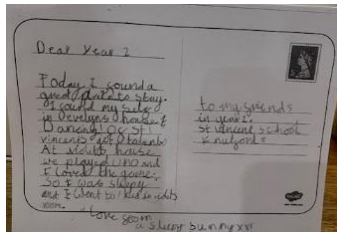 Dear Year 2
Today I sound a
great plate to stay.
I sound my self
in Develyns house
Dancing
vincents got talent.
At house
we played uno and
I loved the game.
So I was sleepy
and I went to bed in
room.
Love from
a sleepy bunny xx
to my friends
in year 2.
St Vincent school
Knutford